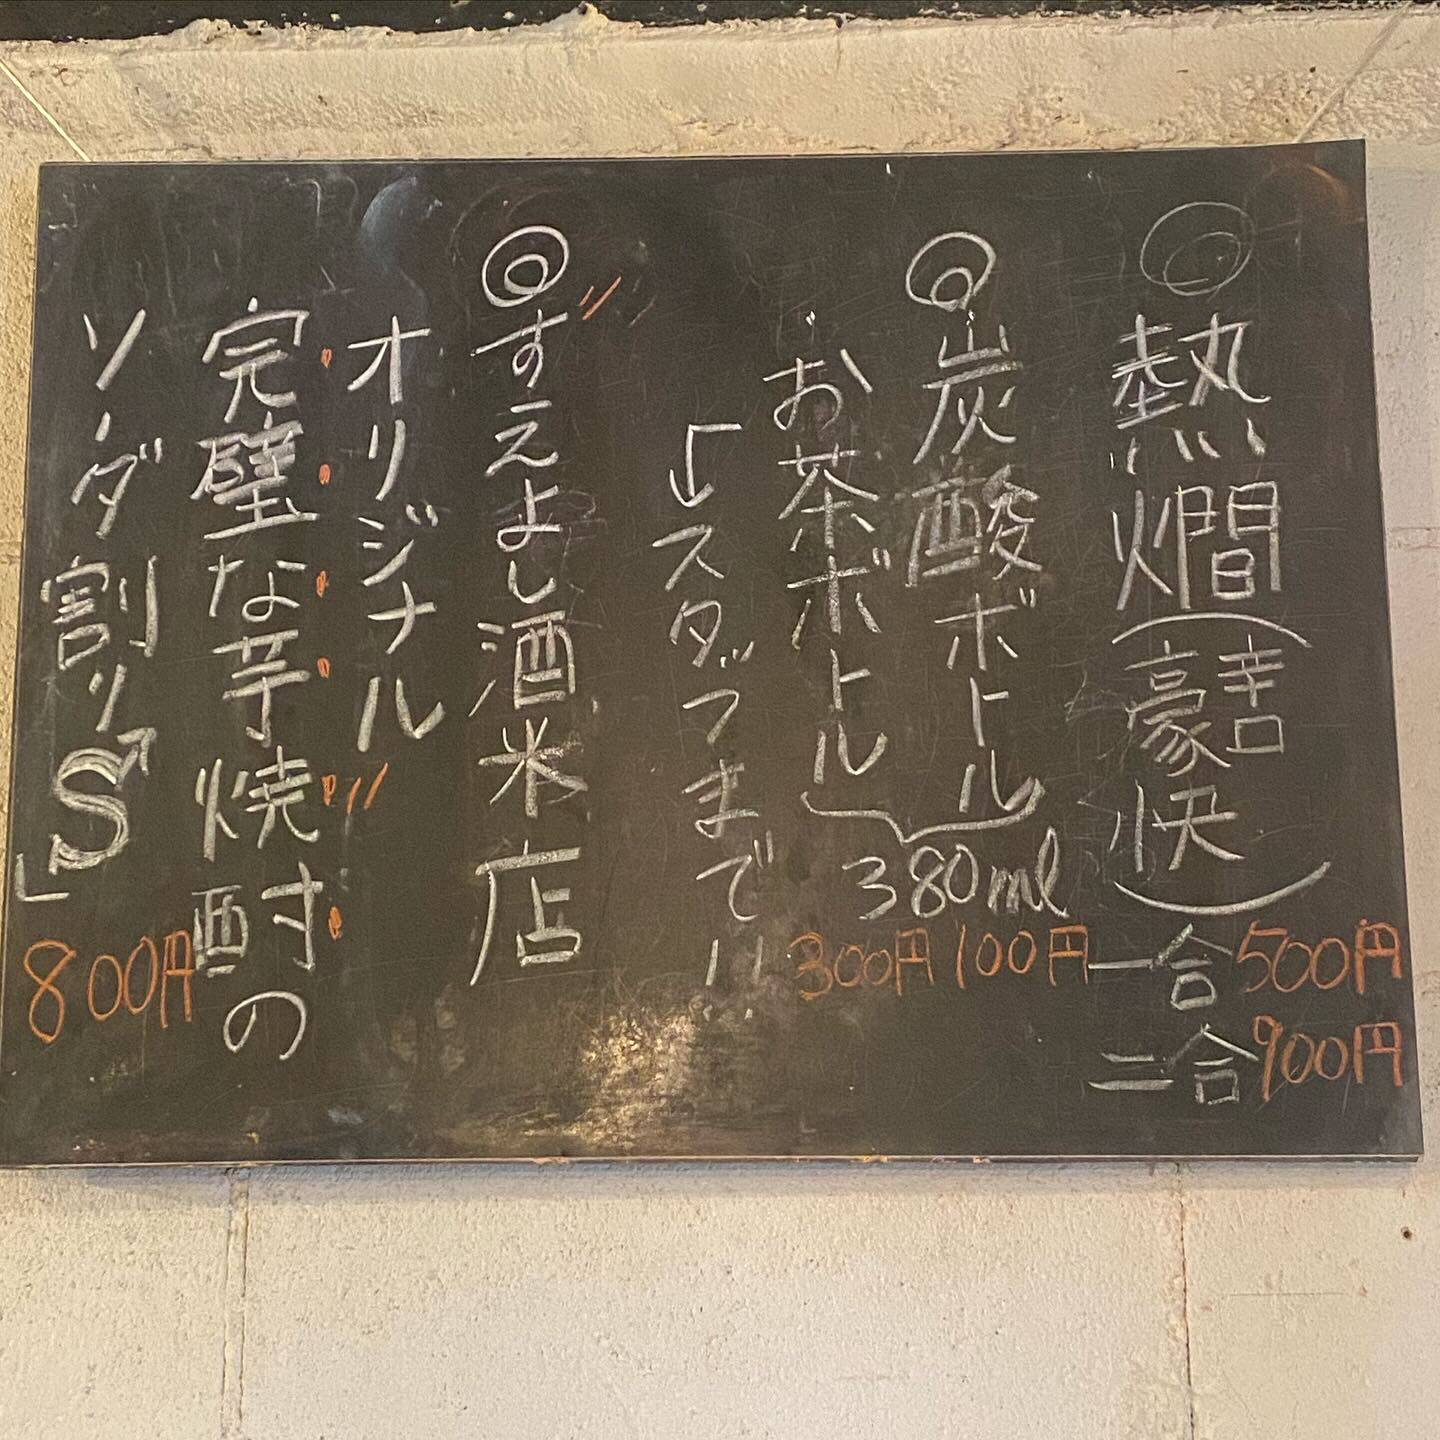 ◎熱燗(喜豪快)
一合500円
二合900円
◎炭酸ボトル
お茶ボトル
380ml
100円
300円
↓スタッフまで!!
◎すえよし酒米店
オリジナル
完璧な芋焼酎の
ソーダ割り「S」
800円